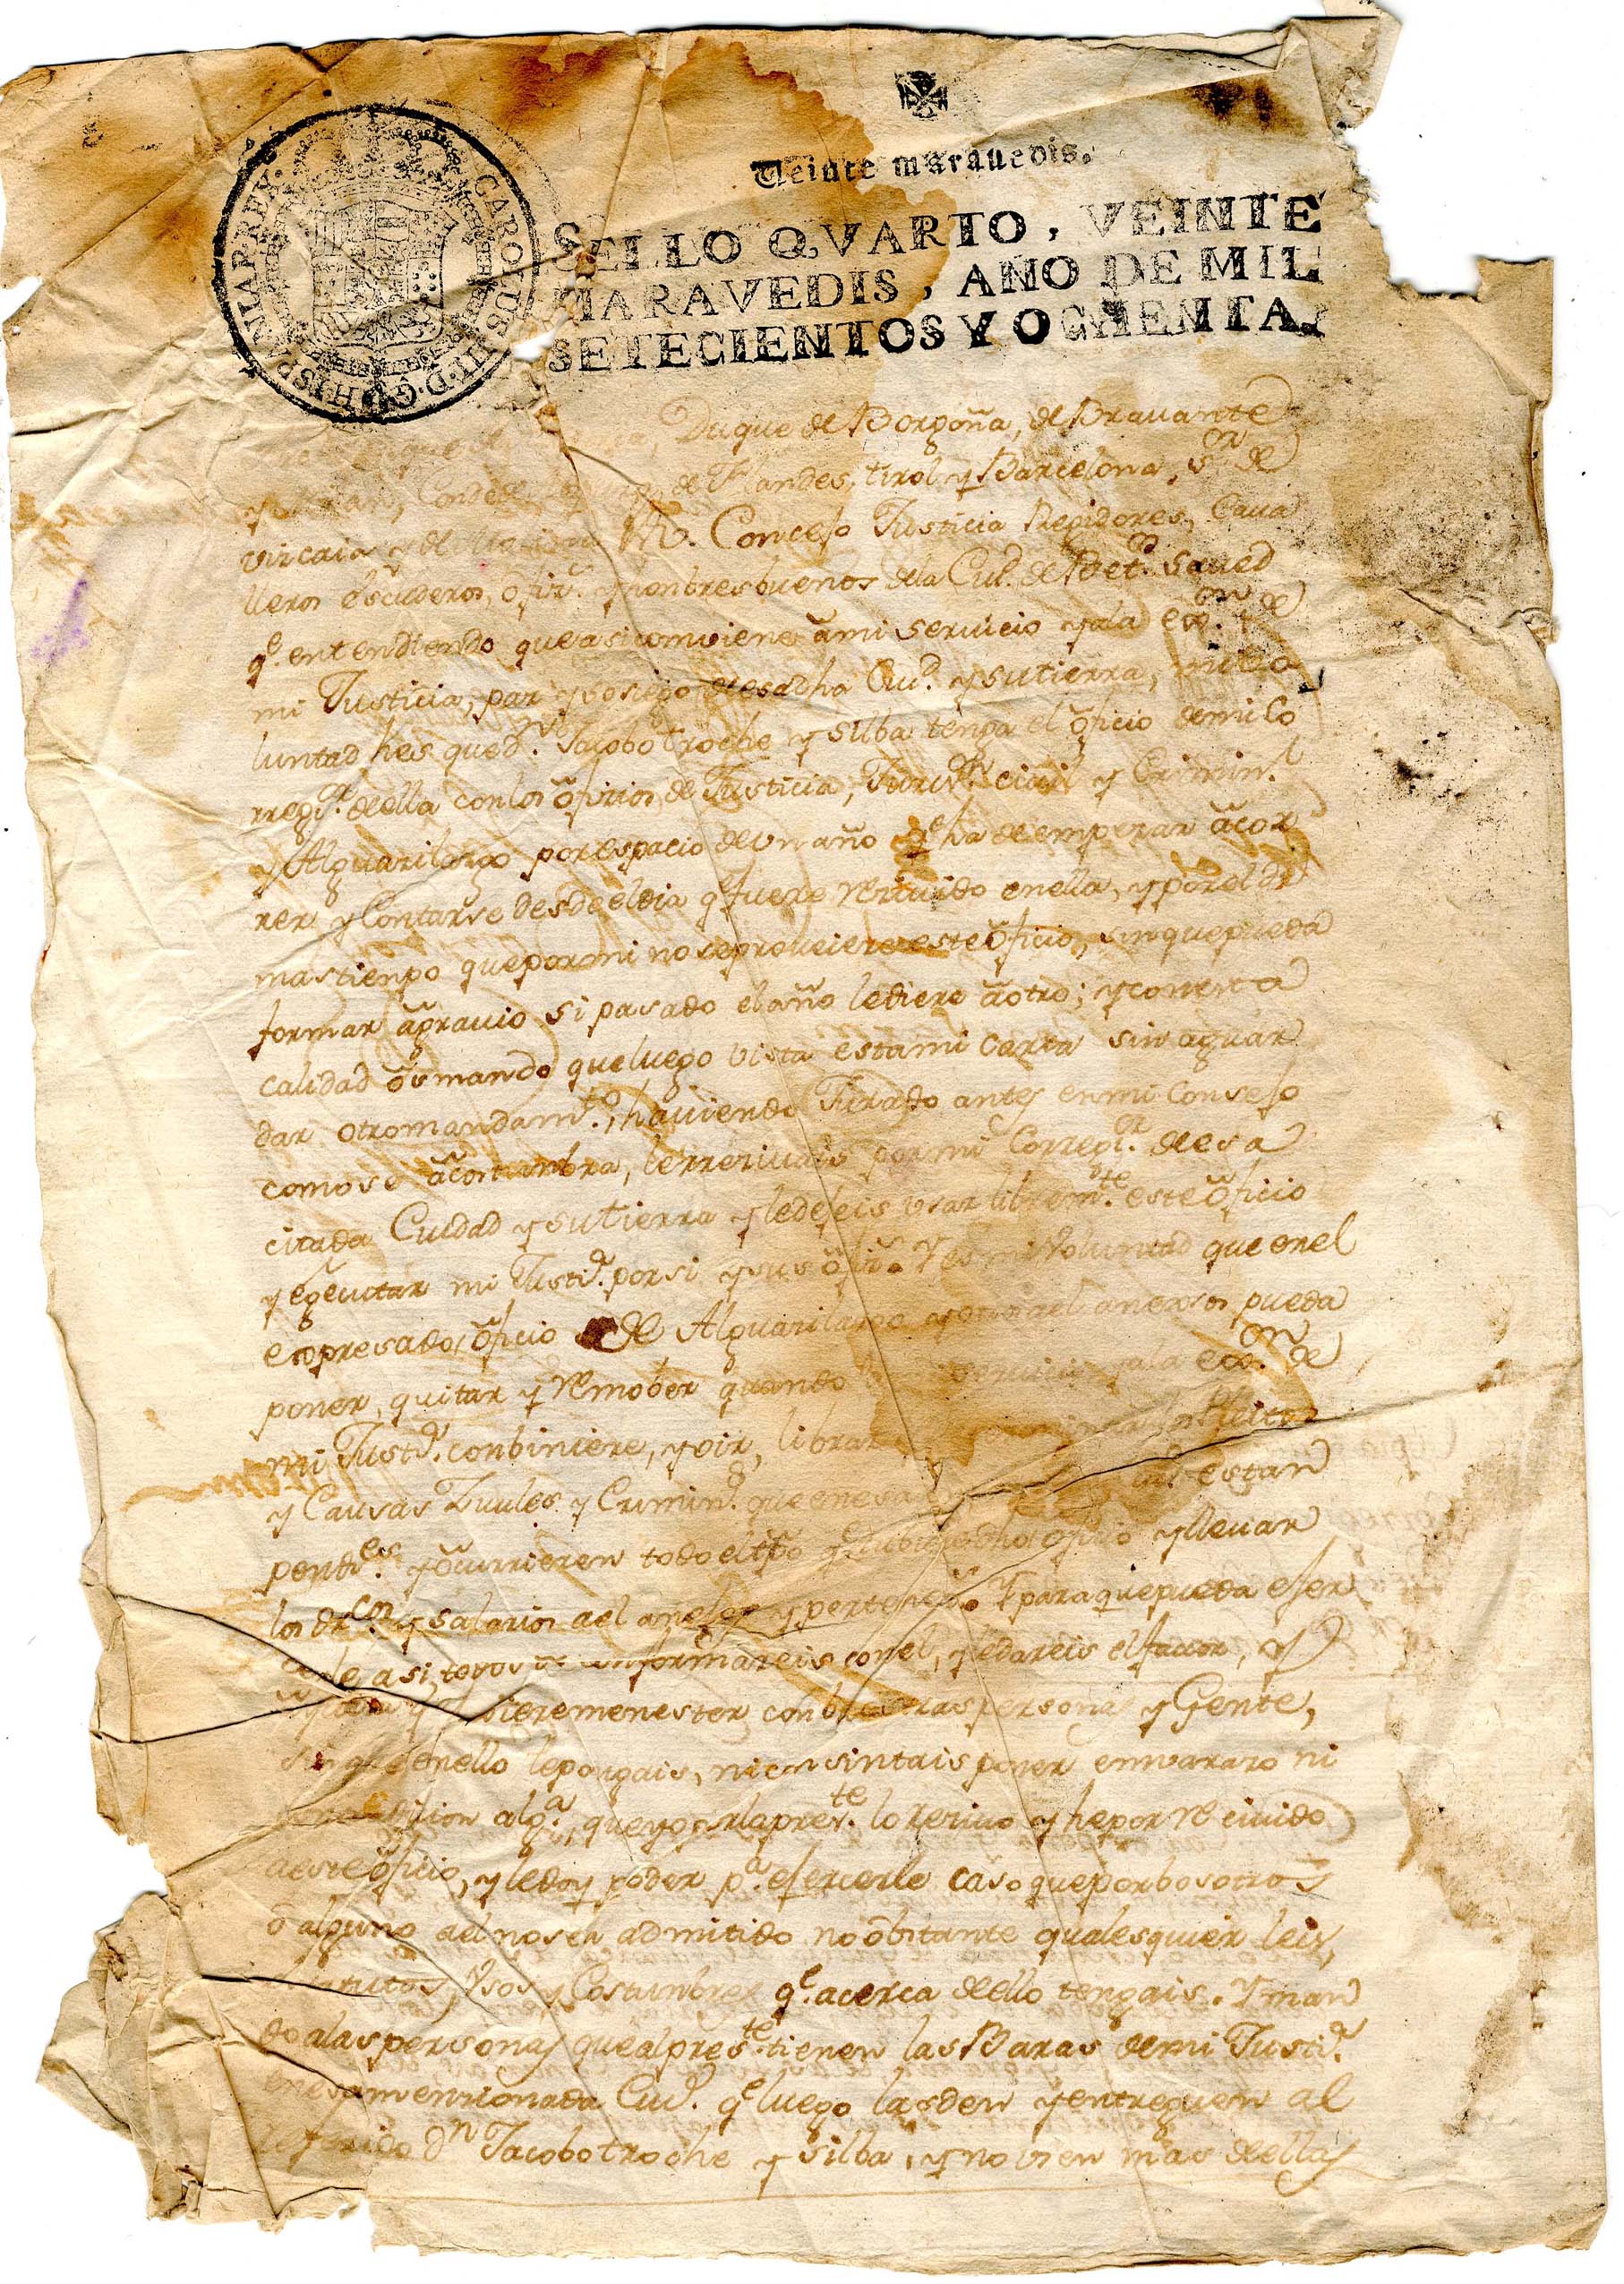 CAROLUS III D.G. HISPANIAR. REX.
Veinte marauedis.
SELLO QVARTO, VEINTE
MARAVEDIS, AÑO DE MIL
SETECIENTOS Y OCHENTA.
Duque de Borgoña, de Brauante
y Milan, Conde de de Flandes, tirol y Barcelona, S.or de
vizcaia y de Molina &. Concejo Justicia Regidores, Caua
lleros escuderos, ofiz.s y honbres buenos dela Ciu.d de Bet.os saued
q.e entendiendo que asi comviene a mi seruicio y ala ex.on de
mi Justicia, paz y sosiego de esa dha Ciu.d y su tierra, mi bo
luntad hes que d.n Jacobo troche y Silba tenga el oficio de mi Co
rreg.or de ella con los ofizios de Justicia, Jurid.on ciuil y Crimin.l
y Alguazilazgo por espacio de un año q.e ha de empezar a cor
rer y Contarse desde el dia q.e fuere reziuido en ella, y por el de
mas tienpo que por mi no se proueiere este oficio, sin que pueda
formar agrauio si pasado el año le diere a otro; y con esta
calidad os mando que luego vista esta mi carta sin aguar
dar otro mandam.to, hauiendo Jurado antes en mi Consejo
como se acostunbra, le rreziuais por mi Correg.or de esa
citada Ciudad y su tierra y le dejeis usar librem.te este oficio
y egecutar mi Justi.a por si y sus ofiz.s Y es mi Voluntad que en el
expresado oficio de Alguazilazgo y demas a el anexos pueda
poner, quitar y remober quando seruicio y ala ex.on de
mi Just.a conbiniere, y oir, librar los Pleitos
y Causas Ziuiles y Crimin.s que en esa Ciu.d estan
pend.es y ocurrieren todo el tpo q.e tubiere dho ofizio y lleuar
los dr.os y salarios a el anejos y pertenez.s Y para que pueda ejer
zerle asi, todos os conformareis con el, y le dareis el fauor, y
ayuda q.e hubiere menester con buestras persona y Gente,
sin que en ello le pongais, ni consintais poner enbarazo ni
alg.a, que yo por la pres.te lo reziuo y he por reciuido
a este oficio, y le doy poder p.a ejercerle caso que por bosotros
o alguno a el no sea admitido no obstante qualesquier leis,
estatutos, Vsos y Costunbres q.e acerca de ello tengais. Y man
do alas personas que al pres.te tienen las Baras de mi Justi.a
en esa menzionada Ciu.d q.e luego las den y entreguen al
referido D.n Jacobo troche y Silba, y no usen mas de ellas